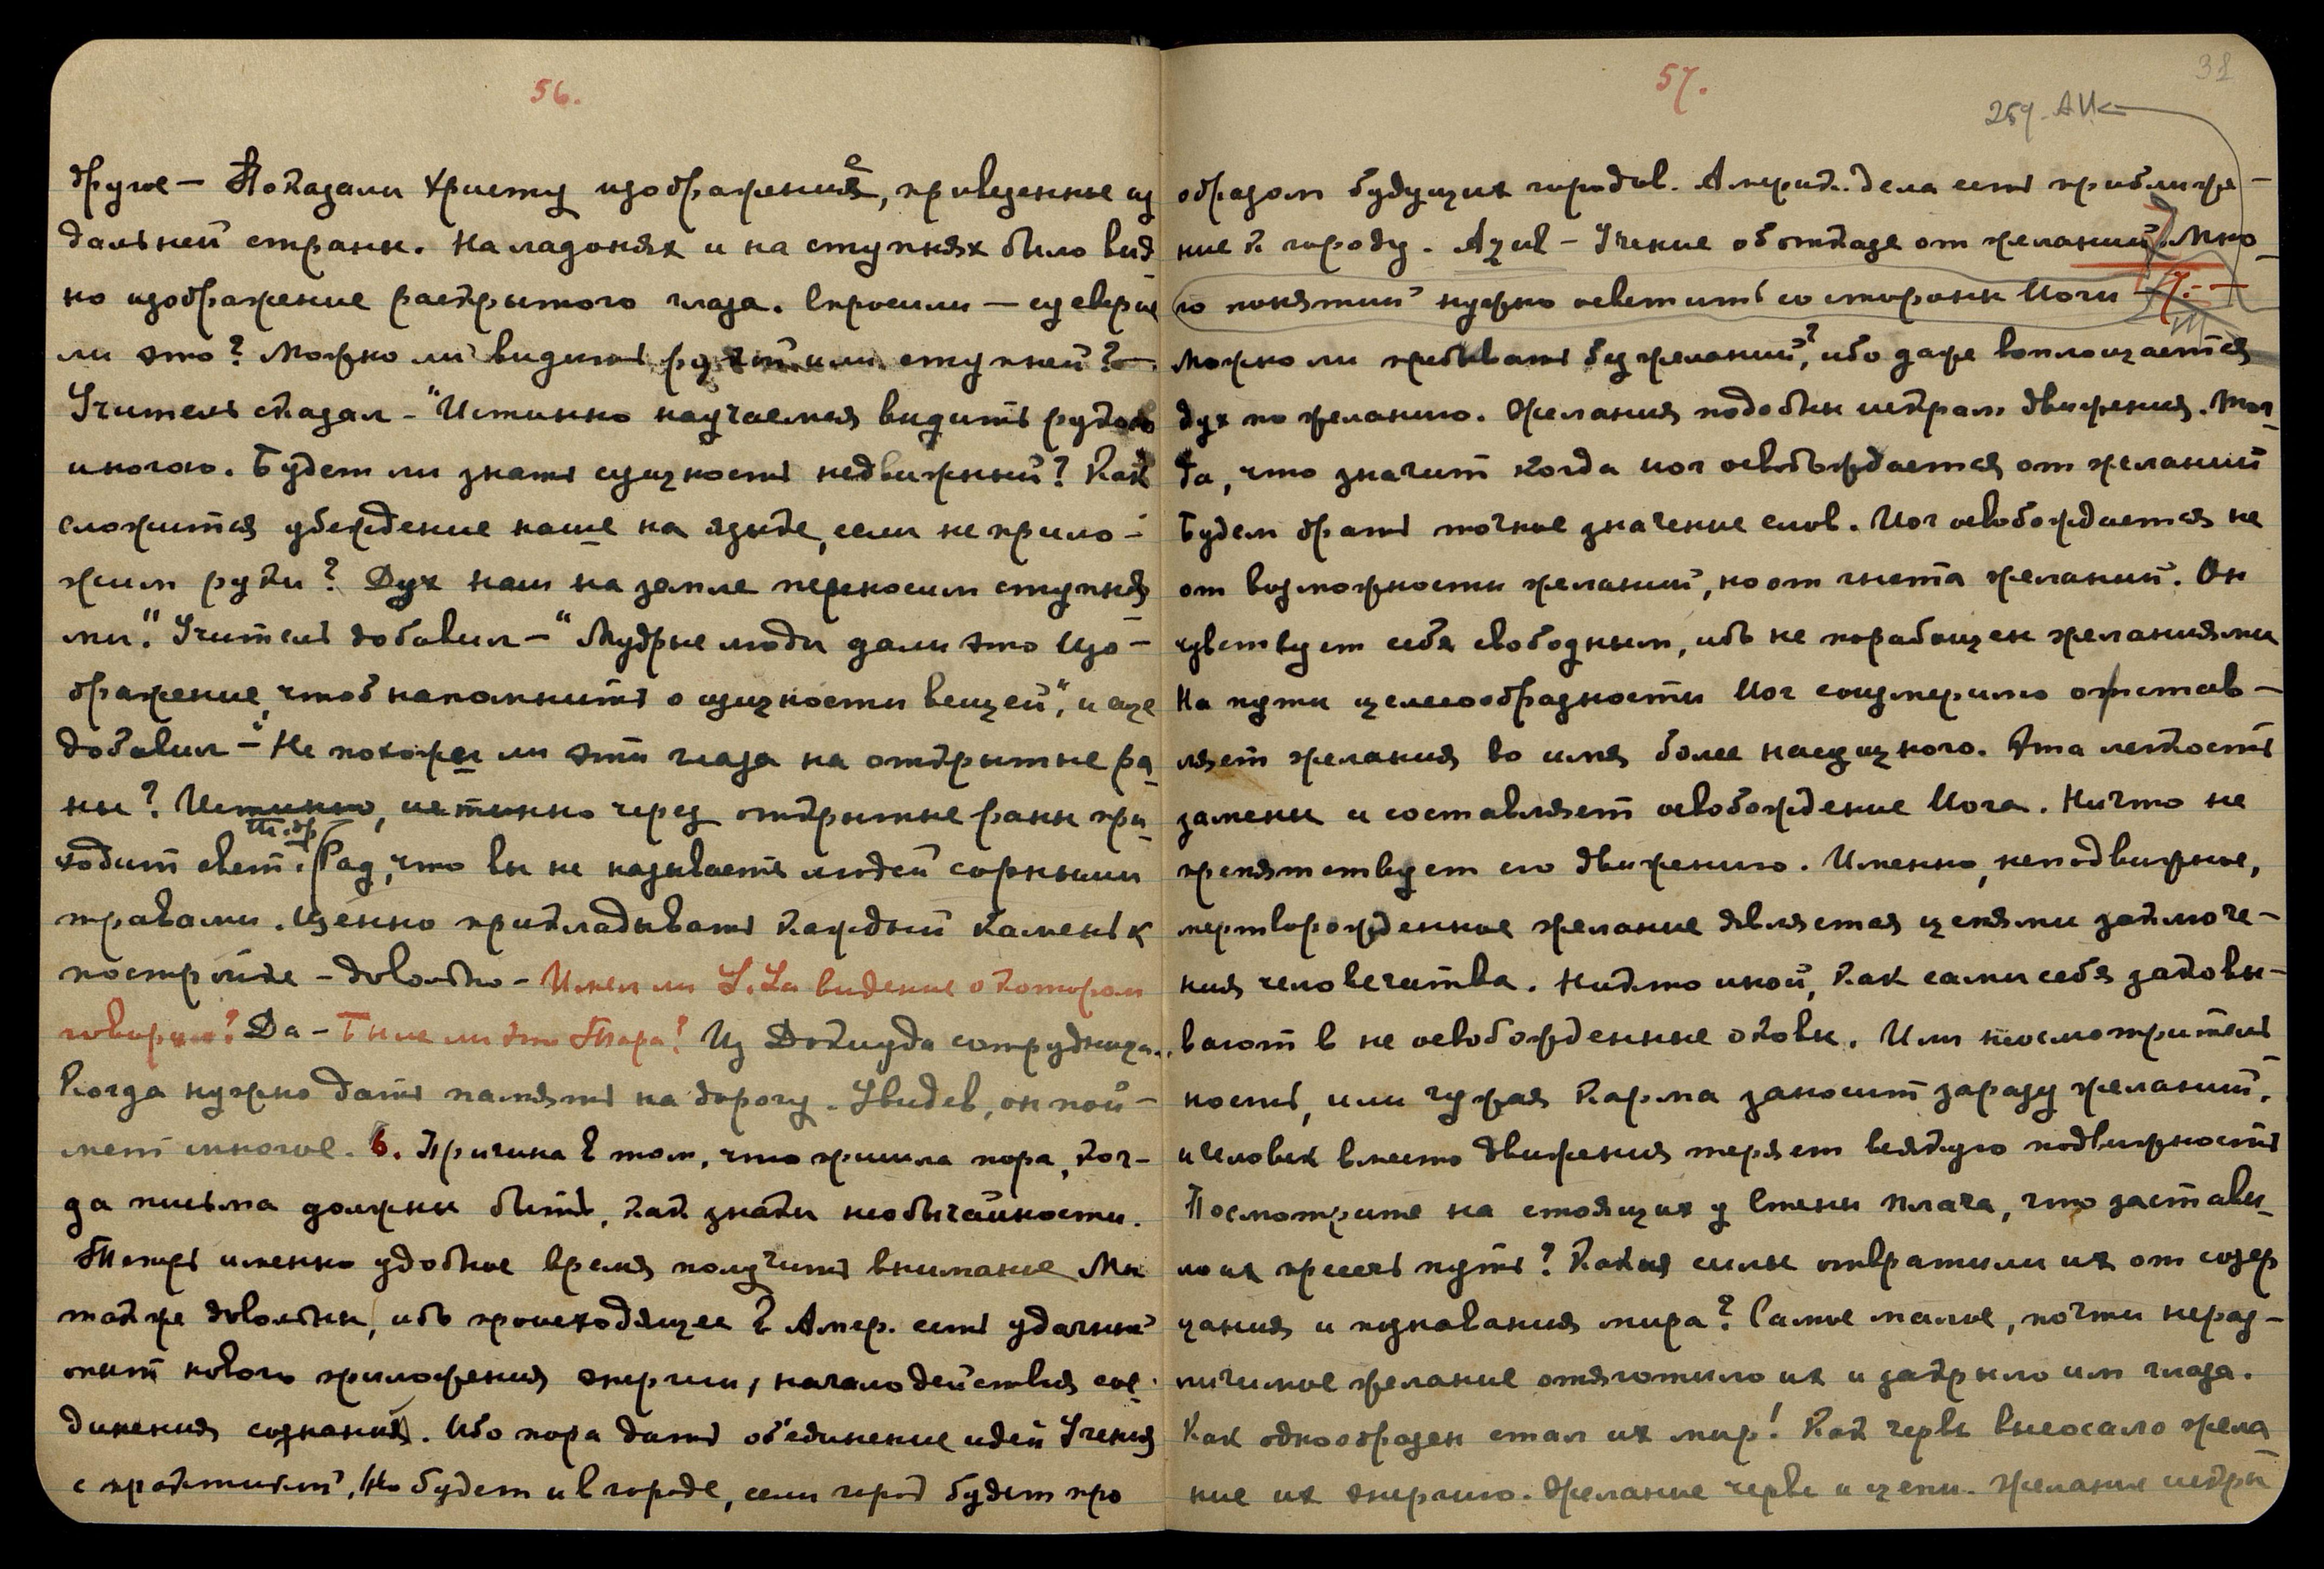 56.
другое — Показали Христу изображение, приведенные из
дальней страны. На ладонях и на ступнях было вид-
но изображение раскрытого глаза. Спросили — суеверие
ли это? Можно ли видеть рукой или ступней? —
Учитель сказал — "Истинно научаемся видеть рукою
и ногою. Будет ли знать сущность недвижный? Как
сложится убеждение наше на языке, если не прило-
жим руки? Дух наш на земле переносим ступня
ми." Учитель добавил — "Мудрые люди дали это изо-
бражение, чтоб напомнить о сущности вещей", и еще
добавил — "Не похожи ли эти глаза на открытые ра-
ны? Истинно, истинно через открытые раны при-
ходит свет". Рад, что вы не называете людей сорными
травами. Ценно прикладывать каждый камень к
постройке — довольно — Имел ли видение о котором
говорил? Да — Было ли это Тара? Из Докиуда сотрудница.
Когда нужно дать память на дорогу. Увидев, он пой-
мет многое. 6. Причина в том, что пришла пора, ког-
да письма должны быть, как знаки необычайности.
Теперь именно удобное время получить внимание Мы
также довольны, ибо происходящее в Амер. есть удачный
опыт нового приложения энергии, начало действия сое-
динения сознаний. Ибо пора дать объединение идей Учения
с практикой. Но будет и в городе, если город будет про
57.
32
259. АИ
образом будущих городов. Америк. дела есть приближе-
ние к городу. Учение об отказе от желаний. Мно-
го понятий нужно осветить со стороны Йоги — 7. —
Можно ли пребывать без желаний?, ибо даже воплощается
дух по желанию. Желания подобны искрам движения. Тог-
да, что значит когда йог освобождается от желаний
Будем брать точное значение слов. Йог освобождается не
от возможности желаний, но от гнета желаний. Он
чувствует себя свободным, ибо не порабощен желаниями
На пути целесообразности Йог соизмеримо отстав-
ляет желания во имя более насущного. Эта легкость
замены и составляет освобождение Йога. Ничто не
препятствует его движению. Именно, неподвижное,
мертворожденное желание является цепями заключе-
ния человечества. Никто иной, как сами себя заковы-
вают в не освобожденные оковы. Или неосмотритель-
ность, или чужая карма заносит заразу желаний,
и человек вместо движения теряет всякую подвижность
Посмотрите на стоящих у Стены Плача, что застави-
ло их пресечь путь? Какия силы отвратили их от созер
цания и познавания мира? Самое малое, почти нераз-
личимое желание отяготило их и закрыло им глаза.
Как однообразен стал их мир! Как червь высосало жела
ние их энергию. Желание червь и цепи. Желание искры